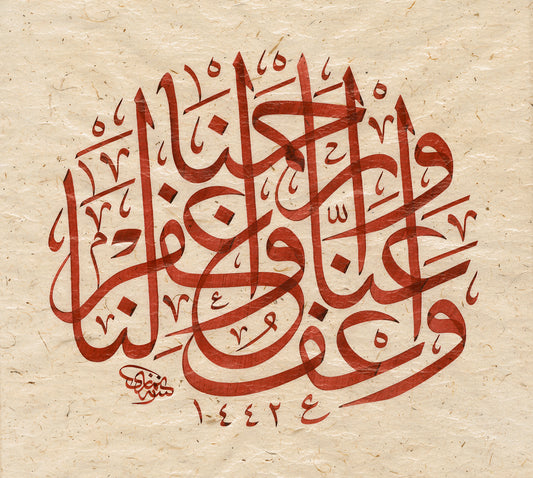 واعف عنا واغفر لنا وارحمنا
١٤٤٢ ع